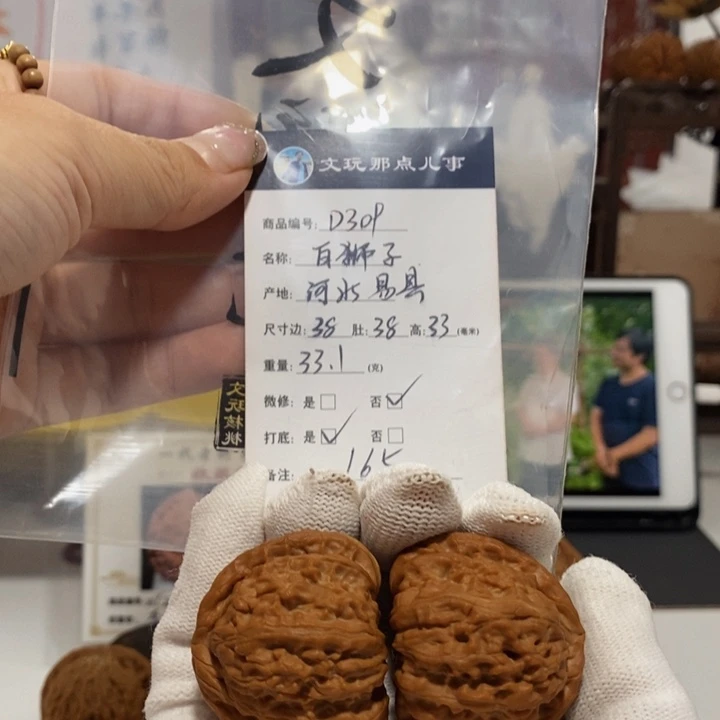 文玩那点儿事
商品编号: D309
名称: 百狮子
产地: 河北易县
尺寸边: 38 肚: 38 高: 33 (毫米)
重量: 33.1 (克)
微修: 是 否
打底: 是 否
备注: 165
文玩核桃